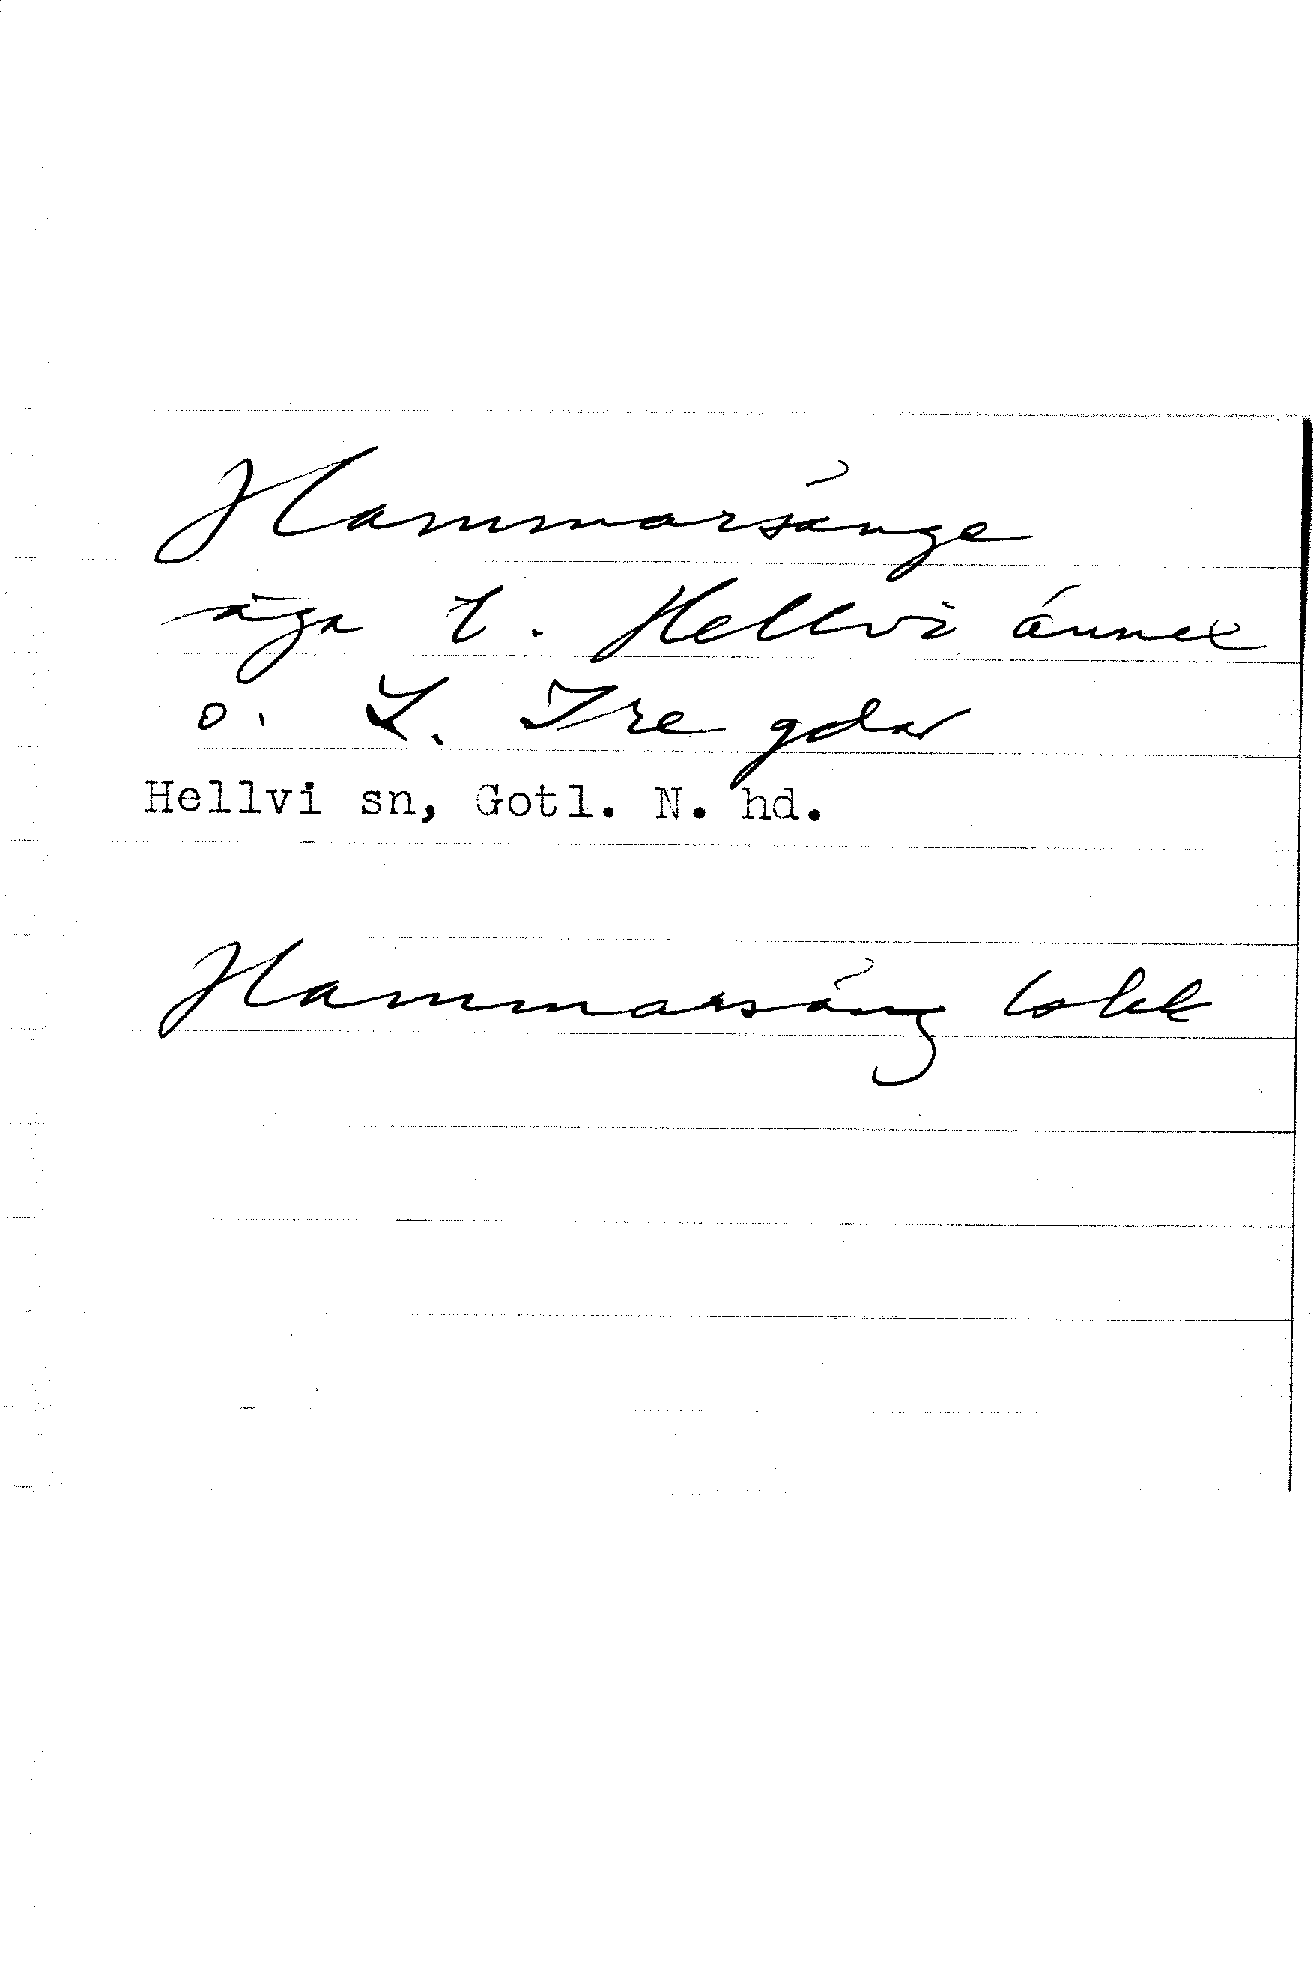 Hammarsänge
äga t. Hellvi annex
o. L. Ire gdar
Hellvi sn, Gotl. N. hd.
Hammarsäng lokk